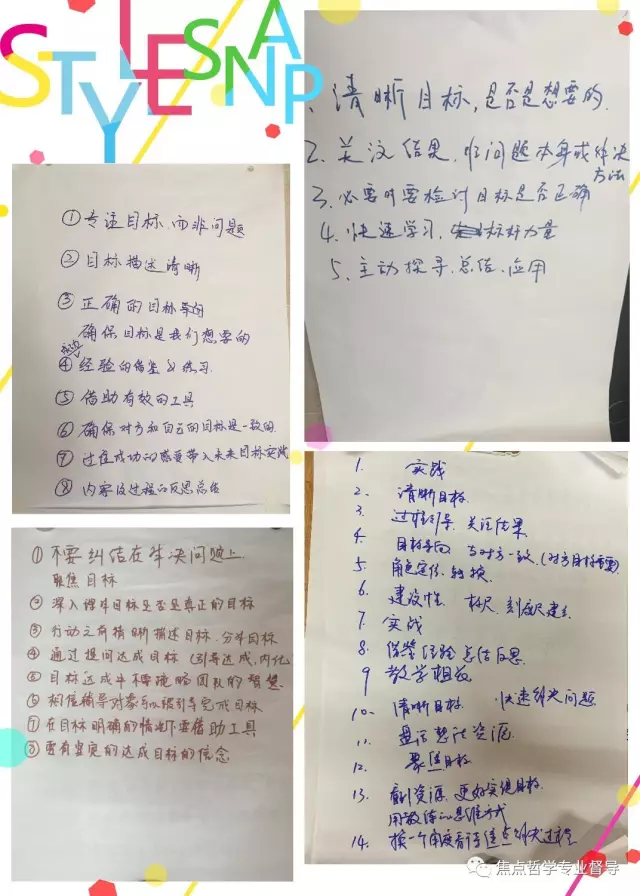 STYLE SNAP
1、清晰目标,是否是想要的.
2、关注结果,非问题本身或解决
方法
3、必要时要检讨目标是否正确
4、快速学习,标杆力量
5、主动探寻、总结、应用
①专注目标,而非问题
②目标描述清晰
③正确的目标导向
确保目标是我们想要的
④经验的借鉴&练习.
⑤借助有效的工具
⑥确保对方和自己的目标是一致的.
⑦过往成功的感受带入未来目标实践
⑧内容及过程的反思总结
①不要纠结在解决问题上.
聚焦目标
②深入谭斗目标是否是真正的目标
③行动之前清晰描述目标.分斗目标
④通过提问达成目标(引导达成,内化)
⑤目标达成中不要忽略团队的智慧
⑥相信辅导对象可以被引导完成目标
⑦在目标明确的情况下要借助工具
⑧要有坚定的达成目标的信念
1. 实践
2. 清晰目标
3. 过程引导、关注结果
4. 目标导向 与对方一致.(对方目标重要)
5. 角色定位、转换
6. 建设性、标尺、刻度尺
7. 实践
8. 借鉴经验 总结反思
9 教学相长
10. 清晰目标. 快速解决问题
11. 盘活整活资源
12. 聚焦目标
13. 看到资源、更好实现目标.
用教练的思维方式
14. 换一个角度看待焦点解决过程
焦点哲学专业督导